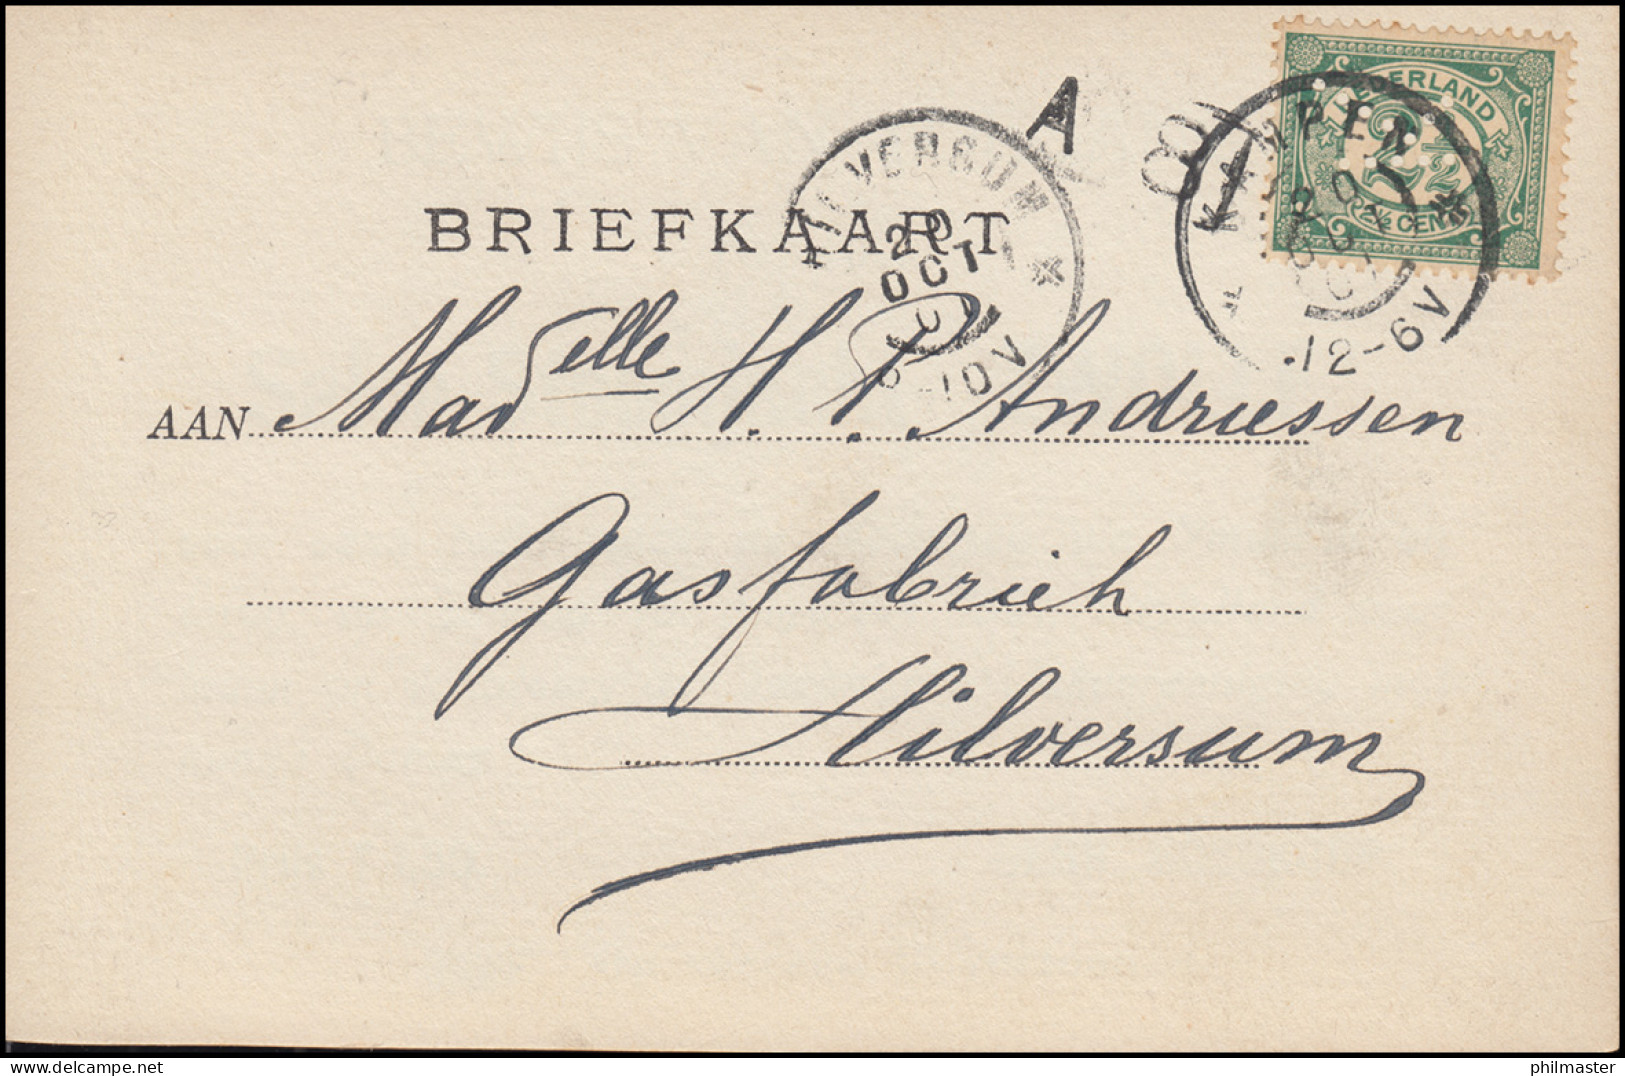 A
NEDERLAND
2½
2½ CENT
KAMPEN
20
OCT
12-6V
HILVERSUM
20
OCT
10V
BRIEFKAART
AAN Madelle H. P. Andriessen
Gasfabriek
Hilversum
philmaster